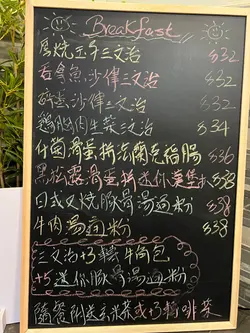 Breakfast
厚燒玉子三文治 $32
吞拿魚沙律三文治 $32
碎蛋沙律三文治 $32
雞胸肉生菜三文治 $34
什菌滑蛋拼法蘭克福腸 $36
黑松露滑蛋拼迷你漢堡扒 $38
日式叉燒豚骨湯通粉 $38
牛肉湯通粉 $38
三文治+3轉牛角包
+5迷你豚骨湯通粉
隨餐附送玄米茶或+3轉啡茶